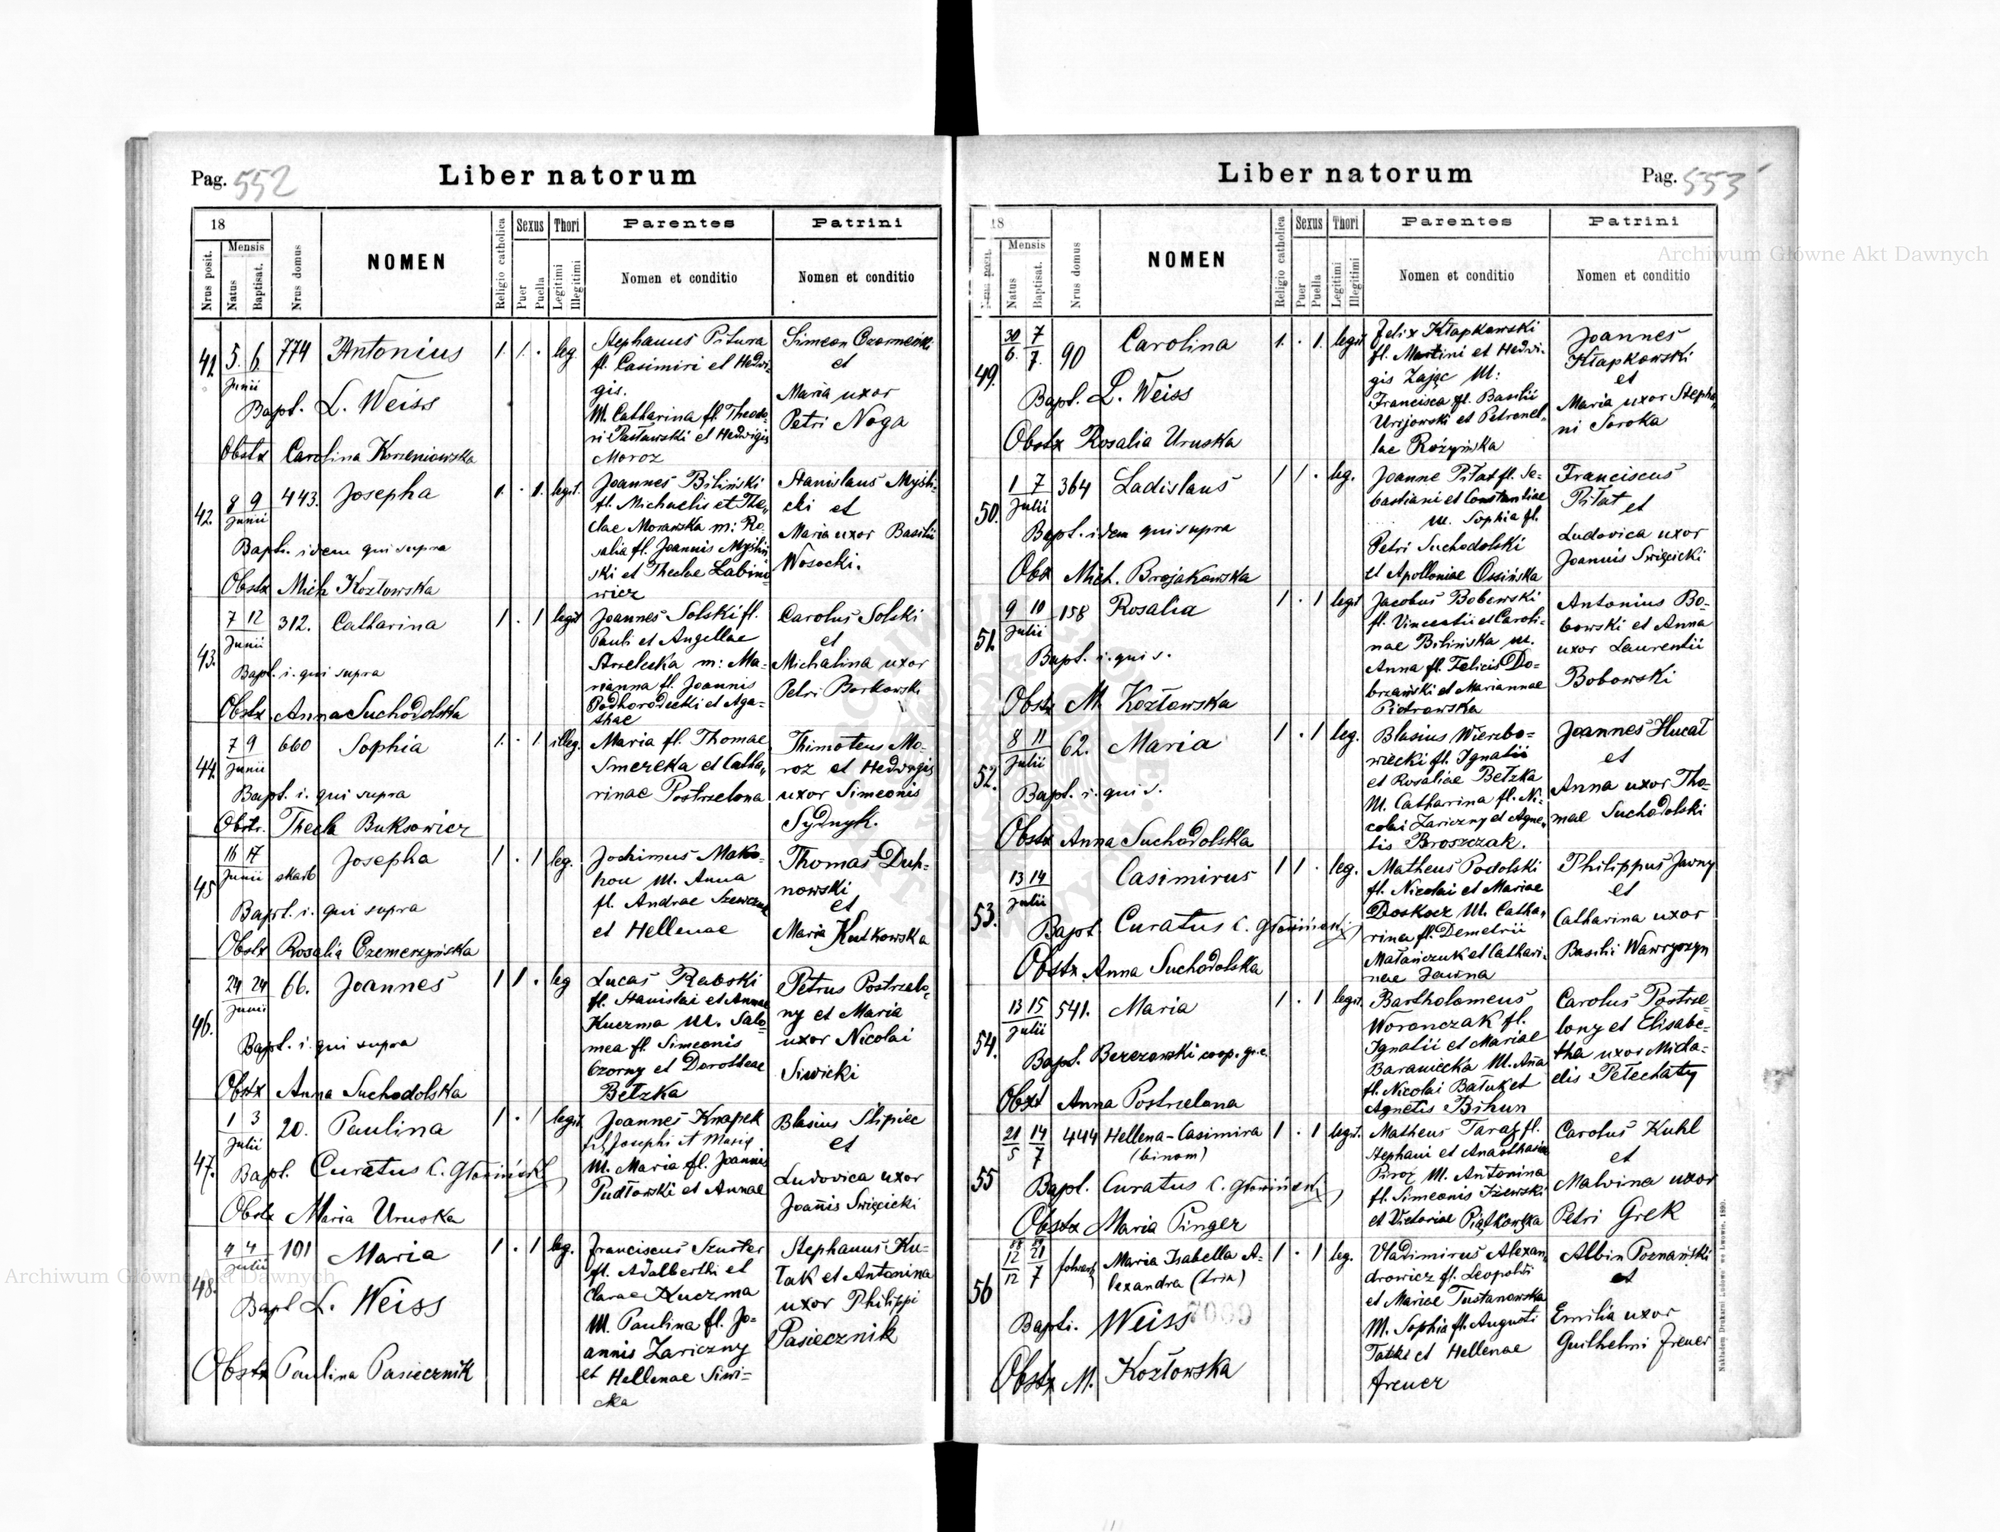 Pag. 552
Liber natorum
18
Mensis
Nrus posit.
Natus
Baptisat.
Nrus domus
NOMEN
Religio catholica
Sexus
Puer
Puella
Thori
Legitimi
Illegitimi
Parentes
Nomen et conditio
Patrini
Nomen et conditio
41. 5. 6. Junii 774 Antonius 1. 1. . leg.
Bapt. L. Weiss
Obstx Carolina Korzeniowska
Stephanus Pitura
fl. Casimiri et Hedwi-
gis.
M. Catharina fl. Theodo-
ri Pasławski et Hedwigis
Moroz
Simeon
et
Maria uxor
Petri Noga
42. 8 9 Junii 443. Josepha 1. . 1. legit.
Bapt. idem qui supra
Obstx Mich Kozłowska
Joannes Biliński
fl. Michaelis et The-
clae Morawska m: Ro
salia fl. Joannis Myśliń
ski et Theclae Łabino
wicz
Stanislaus Myśli-
cki et
Maria uxor Basilii
Wosocki.
43. 7 12 Junii 312. Catharina 1. . 1 legit
Bapt. i. qui supra
Obstx Anna Suchodolska
Joannes Solski fl.
Pauli et Angellae
Strzelecka m: Ma-
rianna fl. Joannis
Podhorodecki et Aga-
thae
Carolus Solski
et
Michalina uxor
Petri Borkowski
44. 7 9 Junii 660 Sophia 1. . 1 illeg.
Bapt. i. qui supra
Obstr. Thecla Buksowicz
Maria fl. Thomae
Smereka et Catha-
rinae Postrzelona
Thimoteus Mo-
roz et Hedwigis
uxor Simeonis
Sydnyk.
45 16 17 Junii skarb Josepha 1 . 1 leg.
Bapt. i. qui supra
Obstx Rosalia Czemerzyńska
Jochimus Mako-
hon M. Anna
fl. Andrae Szewczuk
et Hellenae
Thomas Duh-
nowski
et
Maria Kutkowska
46. 24 24 Junii 66. Joannes 1 1 . leg
Bapt. i. qui supra
Obstx Anna Suchodolska
Lucas Rabski
fl. Stanislai et Annae
Kuczma M. Salo-
mea fl. Simeonis
Czorny et Dorotheae
Bełzka
Petrus Postrzelo-
ny et Maria
uxor Nicolai
Siwicki
47. 1 3 Julii 20. Paulina 1 . 1 legit.
Bapt. Curatus C. Głowiński
Obstx Maria Uruska
Joannes Knapek
fil. Josephi et Maria
M. Maria fl. Joannis
Pudłowski et Annae
Blasius Ślipiec
et
Ludovica uxor
Joanis Święcicki
48. 4 4 Julii 101 Maria 1 . 1 leg.
Bapt L. Weiss
Obstx Paulina Pasiecznik
Franciscus Szuster
fl. Adalberthi et
Clarae Kuczma
M. Paulina fl. Jo-
annis Zariczny
et Hellenae Siwi-
cka
Stephanus Ku-
łak et Antonina
uxor Philippi
Pasiecznik
Liber natorum
Pag. 553
18
Mensis
Natus
Baptisat.
Nrus domus
NOMEN
Religio catholica
Sexus
Puer
Puella
Thori
Legitimi
Illegitimi
Parentes
Nomen et conditio
Patrini
Nomen et conditio
49. 30 7 6. 7. 90 Carolina 1. . 1. legit
Bapt. L. Weiss
Obstx Rosalia Uruska
Felix Kłapkowski
fl. Martini et Hedwi-
gis Zając M:
Francisca fl. Basilii
Urijowski et Petronel-
lae Różyńska
Joannes
Kłapkowski
et
Maria uxor Stepha-
ni Soroka
50. 1 7 Julii 364 Ladislaus 1 1 . leg.
Bapt. idem qui supra
Obx Mich. Brojakowska
Joanne Piłat fl. Se-
bastiani et Constantiae
M. Sophia fl.
Petri Suchodolski
et Apolloniae Ossińska
Franciscus
Piłat et
Ludovica uxor
Joannis Święcicki
51. 9 10 Julii 158 Rosalia 1 . 1 legit
Bapt. i. qui s.
Obstx M. Kozłowska
Jacobus Bobowski
fl. Vincentii et Caroli-
nae Bilińska M.
Anna fl. Felicis Do-
brzański et Mariannae
Piotrowska
Antonius Bo-
bowski et Anna
uxor Laurentii
Bobowski
52. 8 11 Julii 62. Maria 1 . 1 leg.
Bapt. i. qui s.
Obstx Anna Suchodolska
Blasius Wierzbo-
wiecki fl. Ignatii
et Rosaliae Bełzka
M. Catharina fl. Ni-
colai Zariczny et Agne-
tis Broszczak.
Joannes Hucał
et
Anna uxor Tho-
mae Suchodolski
53. 13 14 Julii Casimirus 1 1 . leg.
Bapt. Curatus C. Głowiński
Obstx Anna Suchodolska
Matheus Podolski
fl. Nicolai et Mariae
Doskocz M. Catha-
rina fl. Demetrii
Małańczuk et Cathari-
nae Jawna
Philippus Jawny
et
Catharina uxor
Basilii Wawryszyn
54. 13 15 Julii 541. Maria 1 . 1 legit.
Bapt. Berezowski coop. gr. c.
Obxt Anna Postrzelona
Bartholomeus
Woronczak fl.
Ignatii et Mariae
Baraniecka M. Ana
fl. Nicolai Batuk et
Agnetis Bihun
Carolus Postrze-
lony et Elisabe-
tha uxor Micha-
elis Pełechaty
55 21 14 5 7 444 Hellena-Casimira 1 . 1 legit.
(binom)
Bapt. Curatus C. Głowiński
Obstx Maria Pinger
Matheus Taraz fl.
Stephani et Anasthasia
Piroz M. Antonina
fl. Simeonis Iżewski
et Victoriae Piątkowska
Carolus Kuhl
et
Malvina uxor
Petri Grek
56 88 89 12 21 12 7 folwark Maria Isabella A- 1 . 1 leg.
lexandra (trin)
Bapti. Weiss 7000
Obstx M. Kozłowska
Vladimirus Alexan-
drowicz fl. Leopoldi
et Mariae Tustanowska
M. Sophia fl. Augusti
Tatki et Hellenae
Freuer
Albin Poznański
et
Emilia uxor
Guilhelmi Freuer
Nakładem Drukarni Ludowej we Lwowie. 1890.
Archiwum Główne Akt Dawnych
Archiwum Główne Akt Dawnych